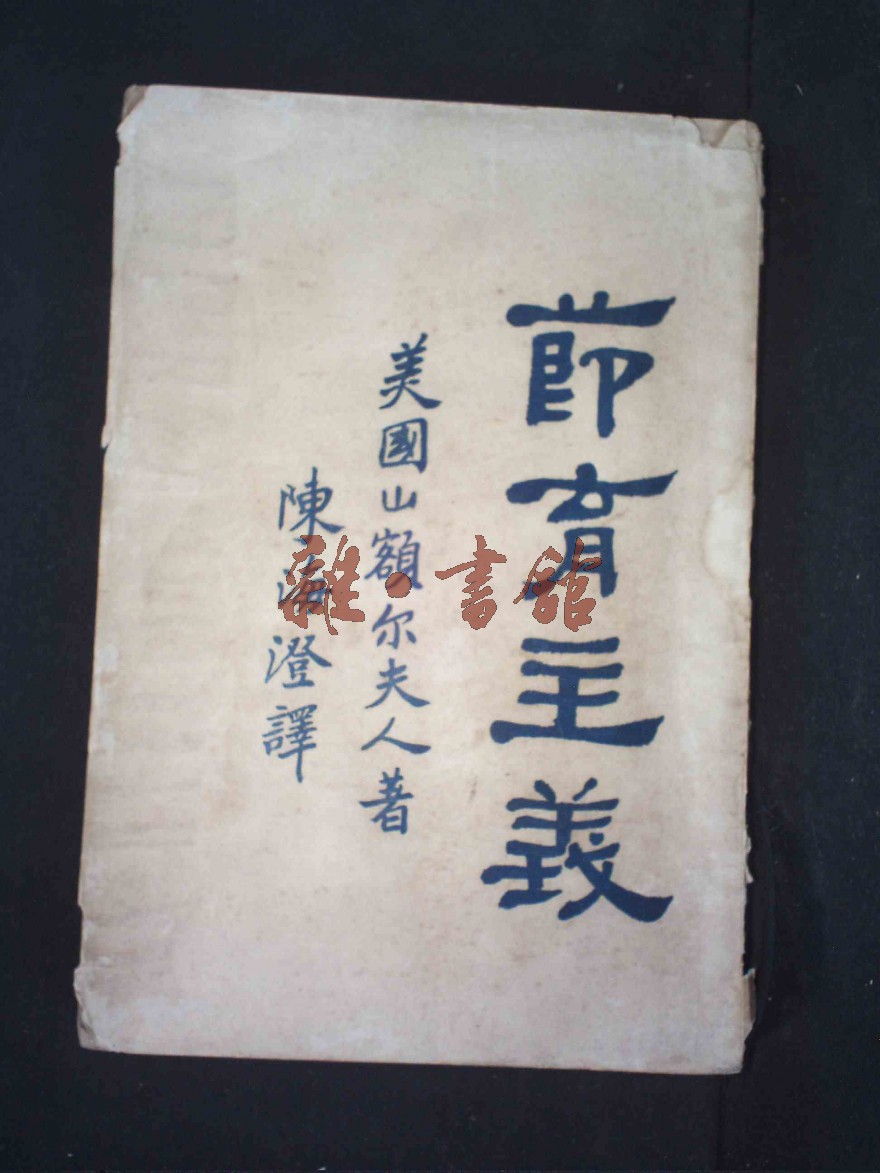 節育主義
美國山額尔夫人著
陳海澄譯
雜·書館